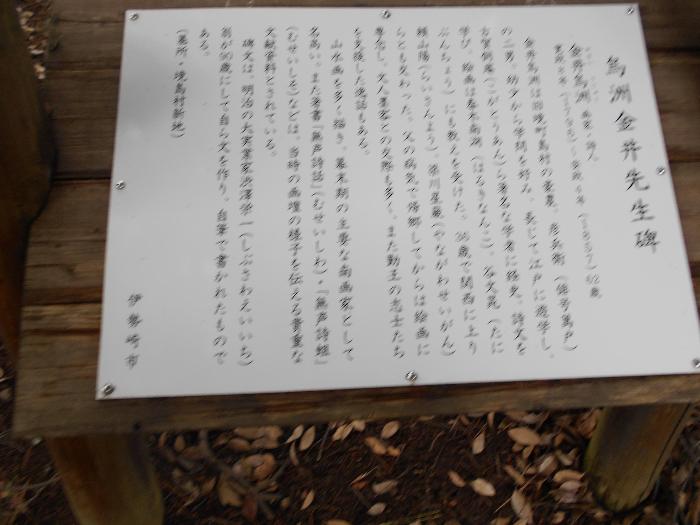 烏洲金井先生碑
金井烏洲 画家・詩人
寛政8年(1796)~安政4年(1857)62歳
金井烏洲は旧境町島村の豪農、彦兵衛(俳号萬戸)
の二男、幼少から学問を好み、長じて江戸に遊学し、
古賀侗庵(こがとうあん)ら著名な学者に経史、詩文を
学び、絵画は春木南湖(はるきなんこ)、谷文晁(たに
ぶんちょう)にも教えを受けた。36歳で関西に上り
頼山陽(らいさんよう)、梁川星巌(やながわせいがん)
らとも交わった。父の病気で帰郷してからは絵画に
専念し、文人墨客との交際も多く、また勤王の志士たち
を支援した逸話もある。
山水画を多く描き、幕末期の主要な南画家として
名高い。また著書『無声詩話』(むせいしわ)・『無声詩組』
(むせいしそ)などは、当時の画壇の様子を伝える貴重な
文献資料とされている。
碑文は、明治の大実業家渋澤栄一(しぶさわえいいち)
翁が90歳にして自ら文を作り、自筆で書かれたもので
ある。
(墓所・境島村新地)
伊勢崎市